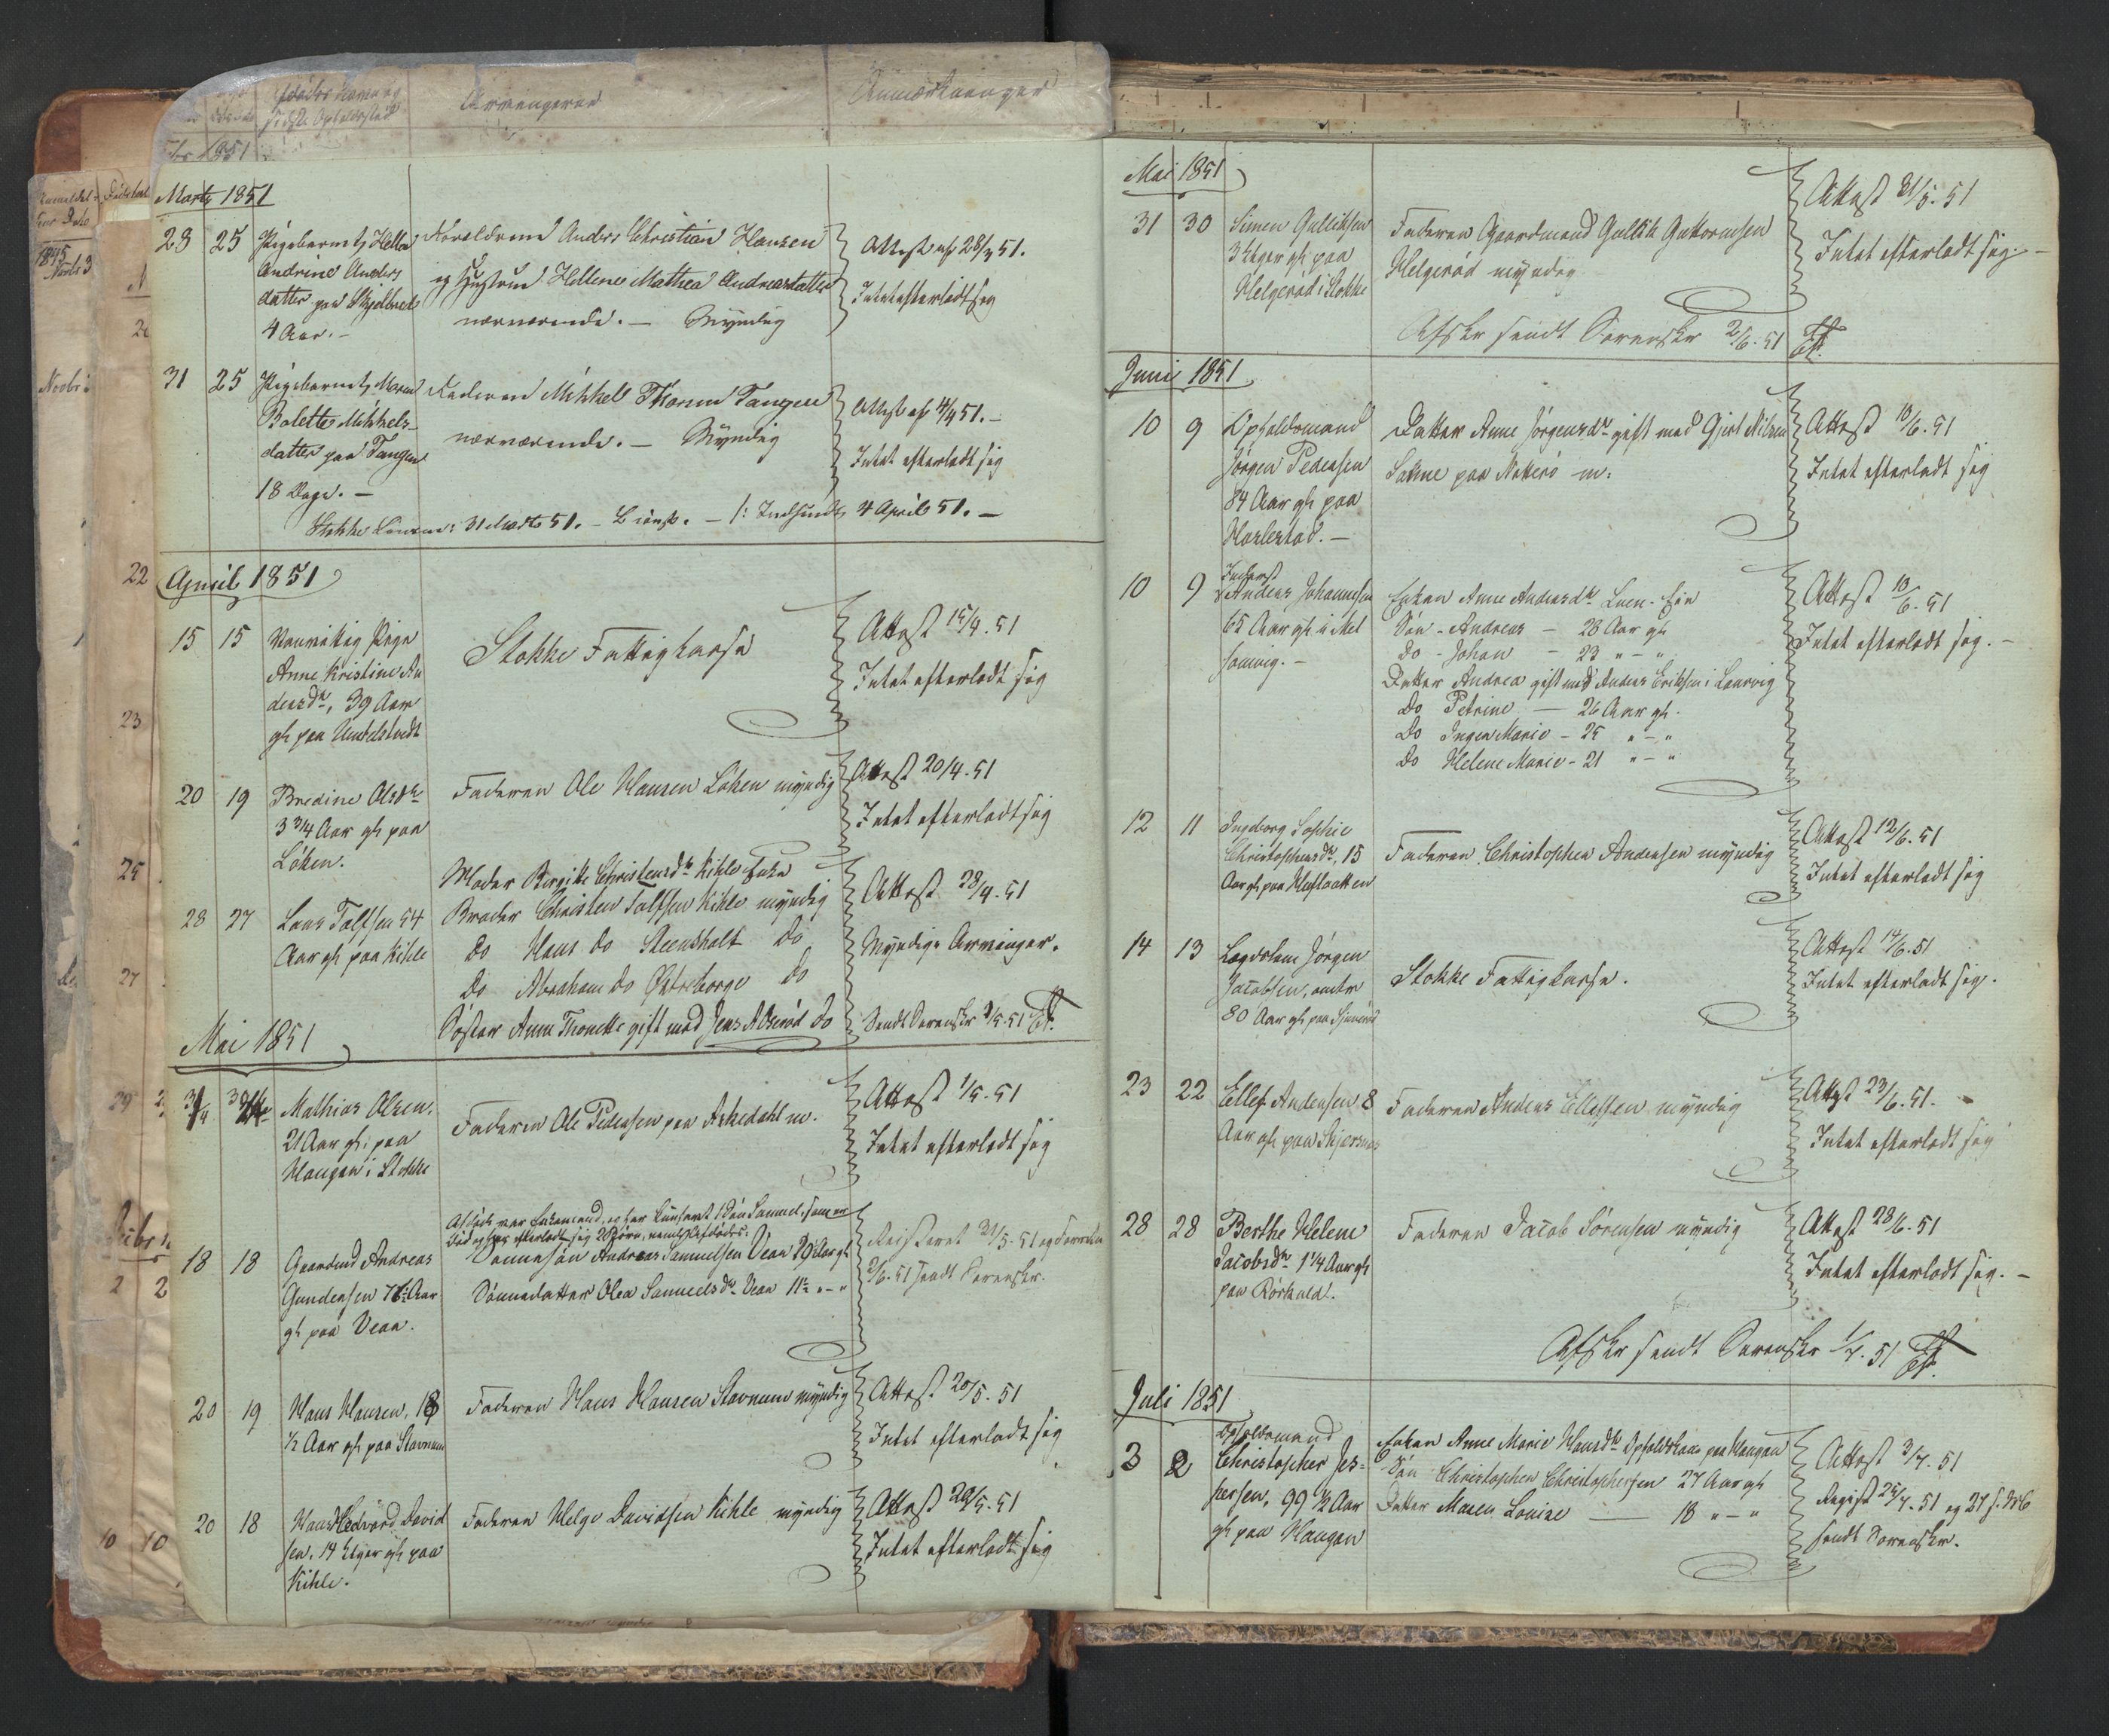 Marts 1851
28 25 Pigebarnet Helle
Andrine Anders
datter paa
4 Aar. –
Forældrene Anders Christian Hansen
og Hustrue Hellene Mathea Andreasdatter
nærværende. – Myndig
Attest af 28/3 51.
Intet efterladt sig
31 25 Pigebarnet Maren
Bolette Mikkels-
datter paa Tangen
18 Dage. –
Faderen Mikkel Thoresen Tangen
nærværende. – Myndig
Attest af 4/4 51. –
Intet efterladt sig
Stokke 31 Marts 51. – – /: Indsendt 4 April 51. –
April 1851
15 15 Vanvittig Pige
Anne Kristine An
dersdtr, 39 Aar
gl paa
Stokke Fattigkasse
Attest 15/4. 51
Intet efterladt sig
20 19 Bredine Olsdtr
3 3/4 Aar gl paa
Løken.
Faderen Ole Hansen Løken myndig
Attest 20/4. 51
Intet efterladt sig
28 27 Lars Tolfsen 54
Aar gl paa Kihle
Moder Birgitte Christensdtr Kihle Enke
Broder Christen Tolfsen Kihle myndig
Do Hans Do Steensholt Do
Do Abraham Do Do
Søster Anne Thonette gift med Jens Do
Attest 28/4. 51
Myndige Arvinger.
Sendt Sorenskr 2/5. 51
Mai 1851
Mathias Olsen.
21 Aar gl. paa
Haugen i Stokke
Faderen Ole Pedersen paa Askedahl m.
Attest 1/5. 51
Intet efterladt sig
18 18 Gaardmd Andreas
Gundersen 76 Aar
gl paa Vean.
Afdøde var Enkemand, og har 1 Søn Samuel, som er
død og har efterladt sig 2 Børn, nemlig Afdødes:
Sønnesøn Andreas Samuelsen Vean Aar gl
Sønnedatter Olea Samuelsdr Vean 11 1/2 " – "
Registeret 31/5. 51 og
2/6. 51 sendt Sorenskr.
20 19 Hans Hansen, 18
1/2 Aar gl paa Stavnum
Faderen Hans Hansen Stavnum myndig
Attest 20/5. 51
Intet efterladt sig
20 18 Hans Hedevard David
sen. 14 Uger gl paa
Kihle.
Faderen Helge Davidsen Kihle myndig
Attest 22/5. 51
Intet efterladt sig
Mai 1851
31 30 Simen Gulliksen
3 Uger gl paa
Helgerød i Stokke
Faderen Gaardmand Gullik Guttormsen
Helgerød myndig
Attest 31/5. 51
Intet efterladt sig –
Afskr sendt Sorenskr 2/6. 51
Juni 1851
10 9 Opholdsmand
Jørgen Pedersen
84 Aar gl paa
Harlestad. –
Datter Anne Jørgensdr gift med Gjert Nilsen
paa Nøtterø m:
Attest 10/6. 51
Intet efterladt sig
10 9 Inderst
Anders Johannesen
65 Aar gl i Mel
somvig. –
Enken Anne Andersdr
Søn – Andreas – 28 Aar gl
Do – Johan – 23 " – "
Datter Andrea gift med Anders Eriksen i Laurvig
Do Petrine – 26 Aar gl.
Do Inger Marie – 25 " – "
Do Helene Marie – 21 " – "
Attest 10/6. 51
Intet efterladt sig. –
12 11 Ingeborg Sophie
Christophersdr, 15
Aar gl paa
Faderen Christopher Andersen myndig
Attest 12/6. 51
Intet efterladt sig
14 13 Lægdslem Jørgen
Jacobsen, omtr
80 Aar gl paa
Stokke Fattigkasse.
Attest 14/6. 51
Intet efterladt sig.
23 22 Ellef Andersen 8
Aar gl paa
Faderen Anders Ellefsen myndig
Attest 23/6. 51.
Intet efterladt sig
28 28 Berthe Helene
Jacobsdr 1 1/4 Aar gl
paa Rørkuld.
Faderen Jacob Sørensen myndig
Attest 28/6. 51
Intet efterladt sig. –
Afskr sendt Sorenskr 1/7. 51
Juli 1851
3 2 Opholdsmand
Christopher Jes=
persen, 99 1/2 Aar
gl paa Haugan
Enken Anne Marie Hansdtr paa Haugan
Søn Christopher Christophersen 27 Aar gl
Datter Maren Louise — 18 " – "
Attest 3/7. 51
Regist 25/7. 51 og 27 s. M.
sendt Sorenskr.